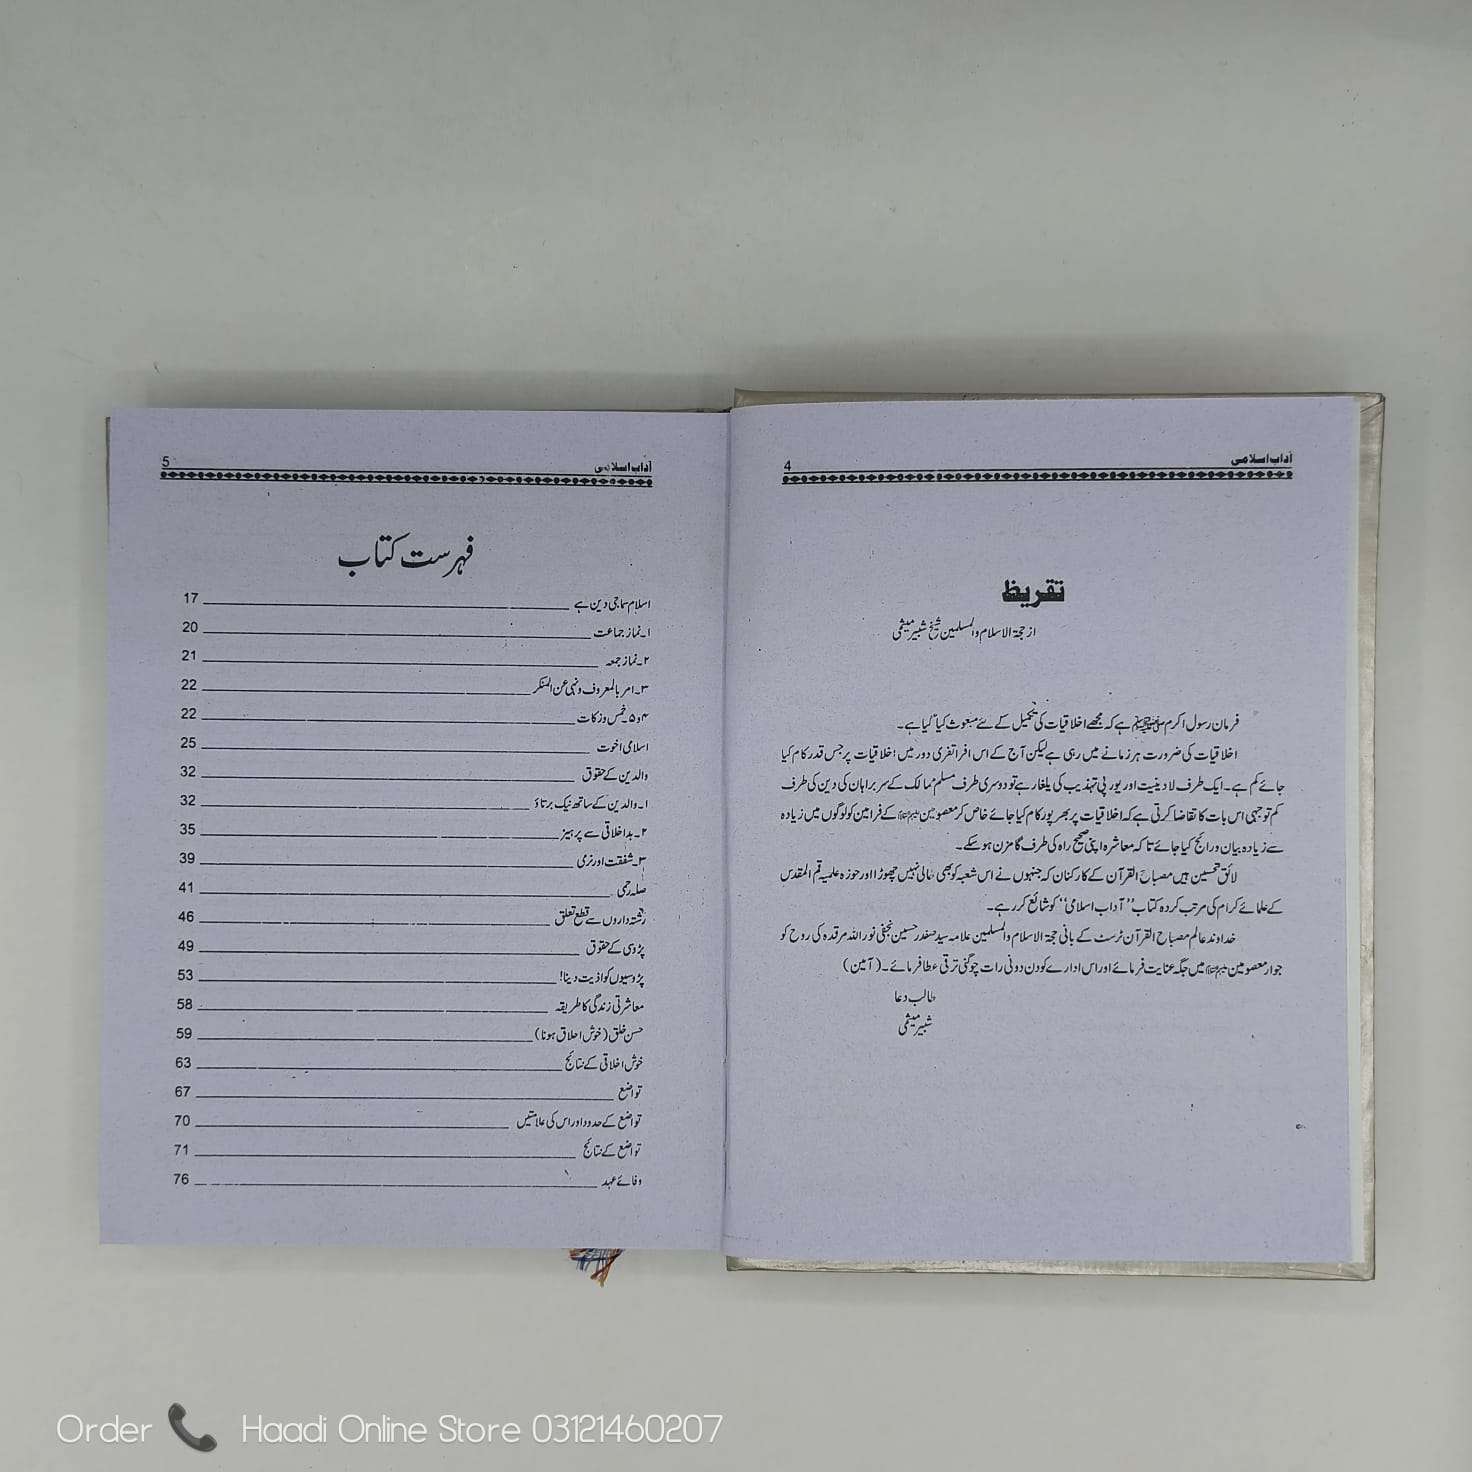 آداب اسلامی
4
تقریظ
از حجۃ الاسلام والمسلمین شیخ شبیر میثمی
فرمان رسول اکرم ﷺ ہے کہ مجھے اخلاقیات کی تکمیل کے لئے مبعوث کیا گیا ہے۔
اخلاقیات کی ضرورت ہر زمانے میں رہی ہے لیکن آج کے اس افراتفری دور میں اخلاقیات پر جس قدر کام کیا
جائے کم ہے۔ ایک طرف لادینیت اور یورپی تہذیب کی یلغار ہے تو دوسری طرف مسلم ممالک کے سربراہان کی دین کی طرف
کم توجہی اس بات کا تقاضا کرتی ہے کہ اخلاقیات پر بھرپور کام کیا جائے خاص کر معصومین کے فرامین کو لوگوں میں زیادہ
سے زیادہ بیان و رائج کیا جائے تاکہ معاشرہ اپنی صحیح راہ کی طرف گامزن ہو سکے۔
لائق تحسین ہیں مصباح القرآن کے کارکنان کہ جنہوں نے اس شعبہ کو بھی خالی نہیں چھوڑا اور حوزہ علمیہ قم المقدس
کے علمائے کرام کی مرتب کردہ کتاب "آداب اسلامی" کو شائع کر رہے۔
خداوند عالم مصباح القرآن ٹرسٹ کے بانی حجۃ الاسلام والمسلمین علامہ سید صفدر حسین نجفی نور اللہ مرقدہ کی روح کو
جوار معصومین میں جگہ عنایت فرمائے اور اس ادارے کو دن دونی رات چوگنی ترقی عطا فرمائے۔ (آمین)
طالب دعا
شبیر میثمی
آداب اسلامی
5
فہرست کتاب
اسلام سماجی دین ہے 17
۱۔ نماز جماعت 20
۲۔ نماز جمعہ 21
۳۔ امر بالمعروف ونہی عن المنکر 22
۴و۵۔ خمس و زکات 22
اسلامی اخوت 25
والدین کے حقوق 32
۱۔ والدین کے ساتھ نیک برتاؤ 32
۲۔ بداخلاقی سے پرہیز 35
۳۔ شفقت اور نرمی 39
صلہ رحمی 41
رشتہ داروں سے قطع تعلق 46
پڑوسی کے حقوق 49
پڑوسیوں کو اذیت دینا! 53
معاشرتی زندگی کا طریقہ 58
حسن خلق (خوش اخلاق ہونا) 59
خوش اخلاقی کے نتائج 63
تواضع 67
تواضع کے حدود اور اس کی علامتیں 70
تواضع کے نتائج 71
وفائے عہد 76
Order Haadi Online Store 03121460207